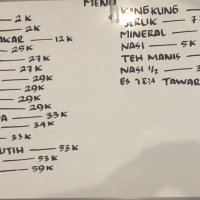 MENU
2K
2K
AKAR 12K
25K
27K
27K
29K
29K
29K
A 33K
34K
33K
UTIH 53K
53K
59K
KANGKUNG
JERUK 7
MINERAL
NASI 5K
TEH MANIS
NASI 1/2 3
ES TEH TAWAR